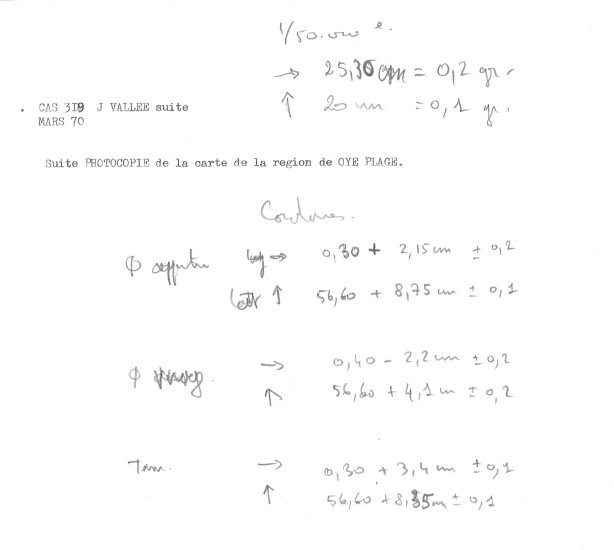 1/50.000 e.
→ 25,30 cm = 0,2 gr.
↑ 20 cm = 0,1 gr.
. CAS 319 J VALLEE suite
MARS 70
Suite PHOTOCOPIE de la carte de la region de OYE PLAGE.
→ 0,30 + 2,15 cm ± 0,2
↑ 56,60 + 8,75 cm ± 0,1
ϕ → 0,40 - 2,2 cm ± 0,2
↑ 56,60 + 4,1 cm ± 0,2
Tem. → 0,30 + 3,4 cm ± 0,1
↑ 56,60 + 8,35 cm ± 0,1